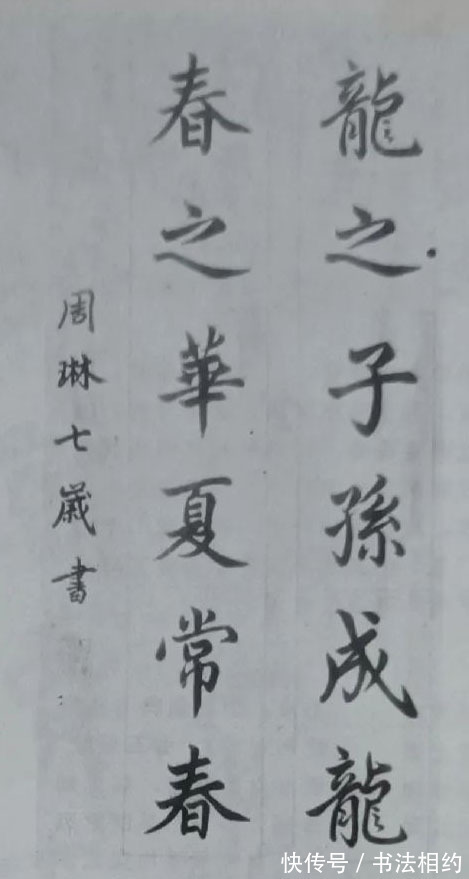 龍之子孫成龍
春之華夏常春
周琳七歲書
快传号/书法相约